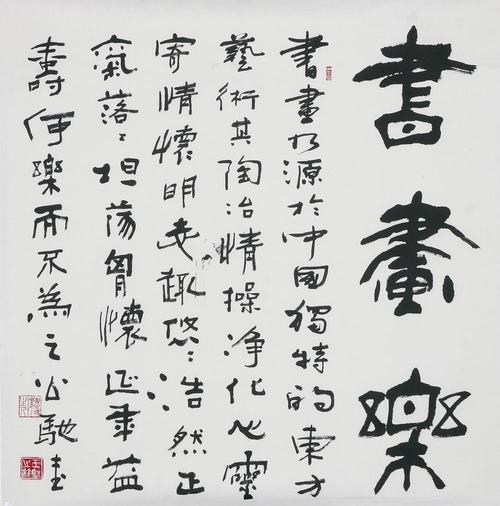 書畫樂
書畫乃源於中國獨特的東方
藝術其陶冶情操淨化心靈
寄情懷明志趣悠〻浩然正
氣落〻坦蕩胸懷延年益
壽何樂而不為之 公馳書